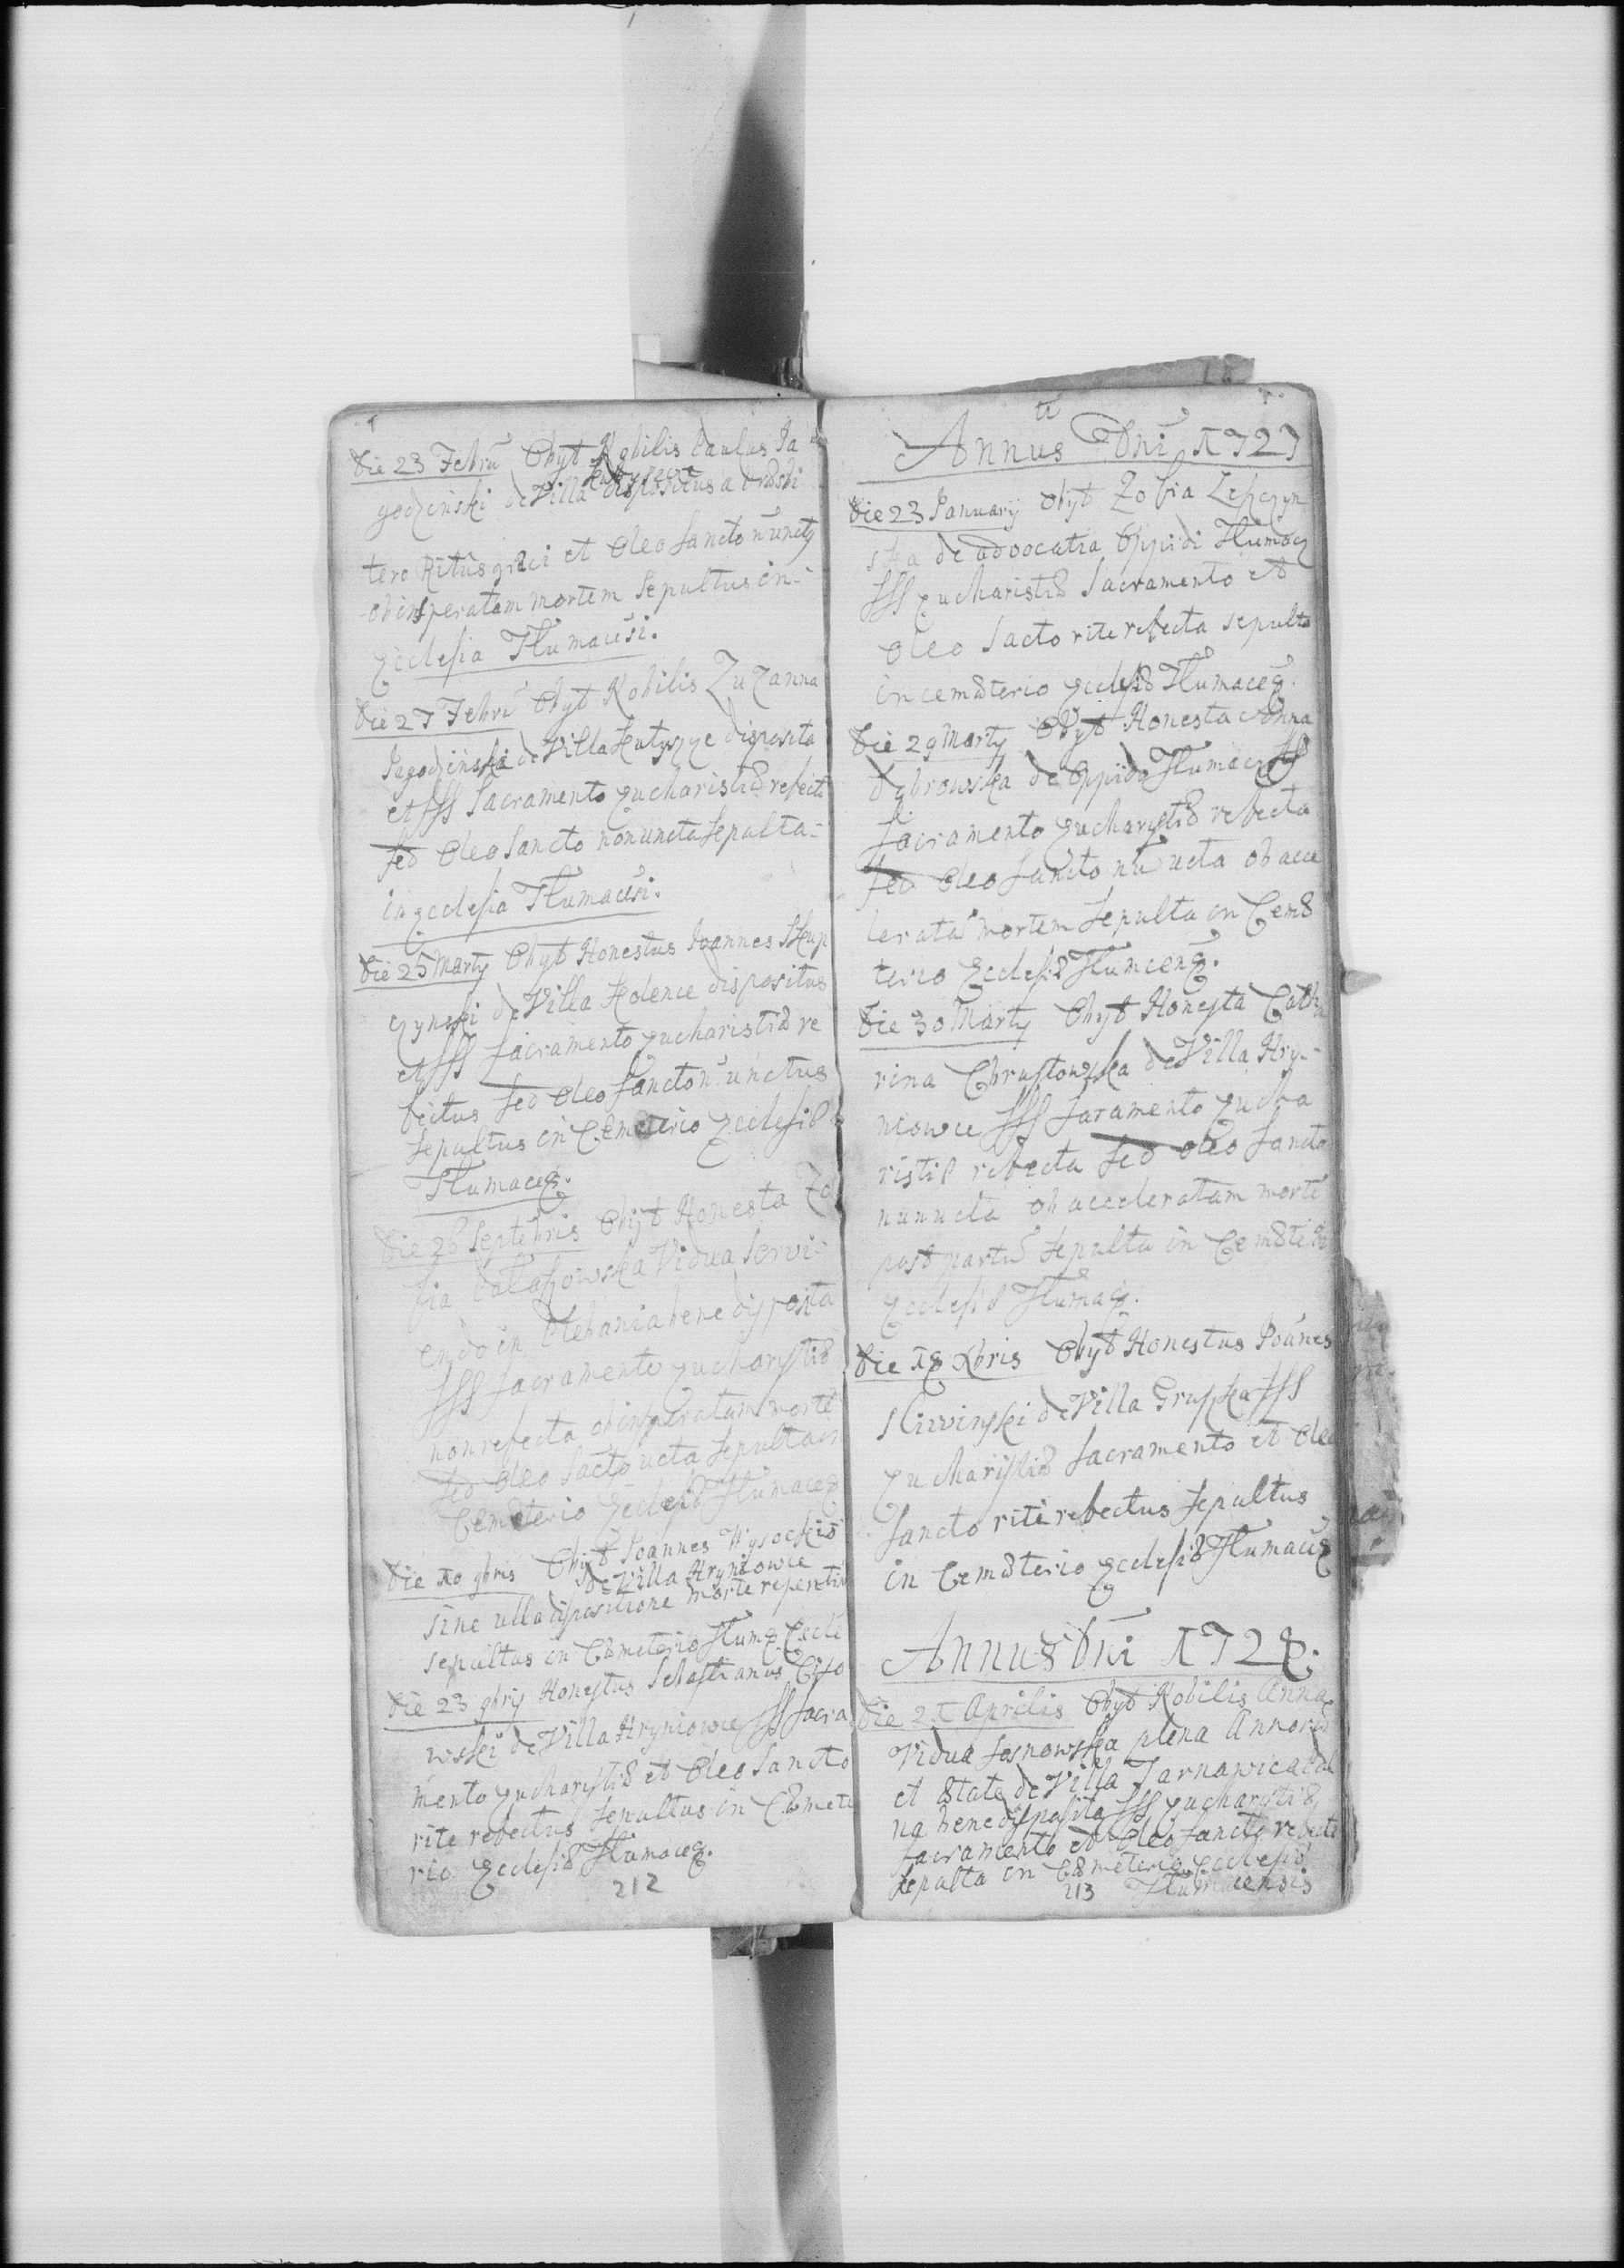 Die 23 Febru Obyt Nobilis Paulus Ja
godzinski de Villa dispositus a
tero Ritus græci et Oleo Sancto n unctq
ob insperatam mortem Sepultus in
Ecclesia Tłumacēsi.
Die 27 Febru Obyt Nobilis Zuzanna
Jagodzinska de Villa Hutyszcze disposita
et SSS Sacramento Eucharistiæ refecta
sed Oleo Sancto non uncta Sepulta
in Ecclesia Tłumacēsi.
Die 25 Marty Obyt Honestus Joannes Skup
czynski de Villa Kolence dispositus
et SSS Sacramento Eucharistiæ re
fectus sed Oleo Sancto n unctus
Sepultus in Cemeterio Ecclesiæ
Tłumaceq.
Die 26 Septebris Obyt Honesta Zo
fia Vidua Servi
endo in Plebania bene disposita
SSS Sacramento Eucharystiæ
non refecta ob insperatam morte
sed Oleo Sacto ucta Sepulta in
Cemeterio Ecclesiæ Tłumaceq
Die 10 9bris Obyt Joannes Wysockiō
de Villa Hryniowce
sine ulla dispositione morte repentin
sepultus in Cæmeterio Tłumq Eccle
Die 23 9bris Honestus Sebastianus Ciso
wski de Villa Hryniowce SS Sacra
mento Eucharystiæ et Oleo Sancto
rite refectus Sepultus in Cæmete
rio Ecclesiæ Tłumaceq.
212
Annus Dni 1727
Die 23 January Obyt Zofia Lepczyn
ska de advocatia Oppidi Tłumacq
SSS Eucharistiæ Sacramento et
Oleo Sacto rite refecta sepulta
in cemæterio Ecclesiæ Tłumaceq.
Die 29 Marty Obyt Honesta Anna
Dąbrowska de Oppido Tłumacz SS
Sacramento Eucharystiæ refecta
sed Oleo Sancto nō ucta ob acce
leratā mortem Sepulta in Cemæ
terio Ecclesiæ Tłumcenq.
Die 30 Marty Obyt Honesta Catha
rina Chrustowska de Villa Hry
niowce SSS Saramento Eucha
ristiæ refecta sed oleo Sancto
nun ucta ob acceleratam morte
post partū Sepulta in Cemæteri
Ecclesiæ Tłumaq.
Die 18 Xbris Obyt Honestus Joānes
Sliwinski de Villa Gruszka SSS
Eucharistiæ Sacramento et Oleo
Sancto rite refectus Sepultus
in Cemæterio Ecclesiæ Tłumacēq
Annus Dni 1728.
Die 21 Aprilis Obyt Nobilis Anna
Vidua Sosnowska plena Annorū
et ætate de Villa Tarnawica Pol
na bene disposita SSS Eucharistiæ
Sacramento et Oleo Sancto refecta
Sepulta in Cæmeterio Ecclesiæ
213 Tłumacensis